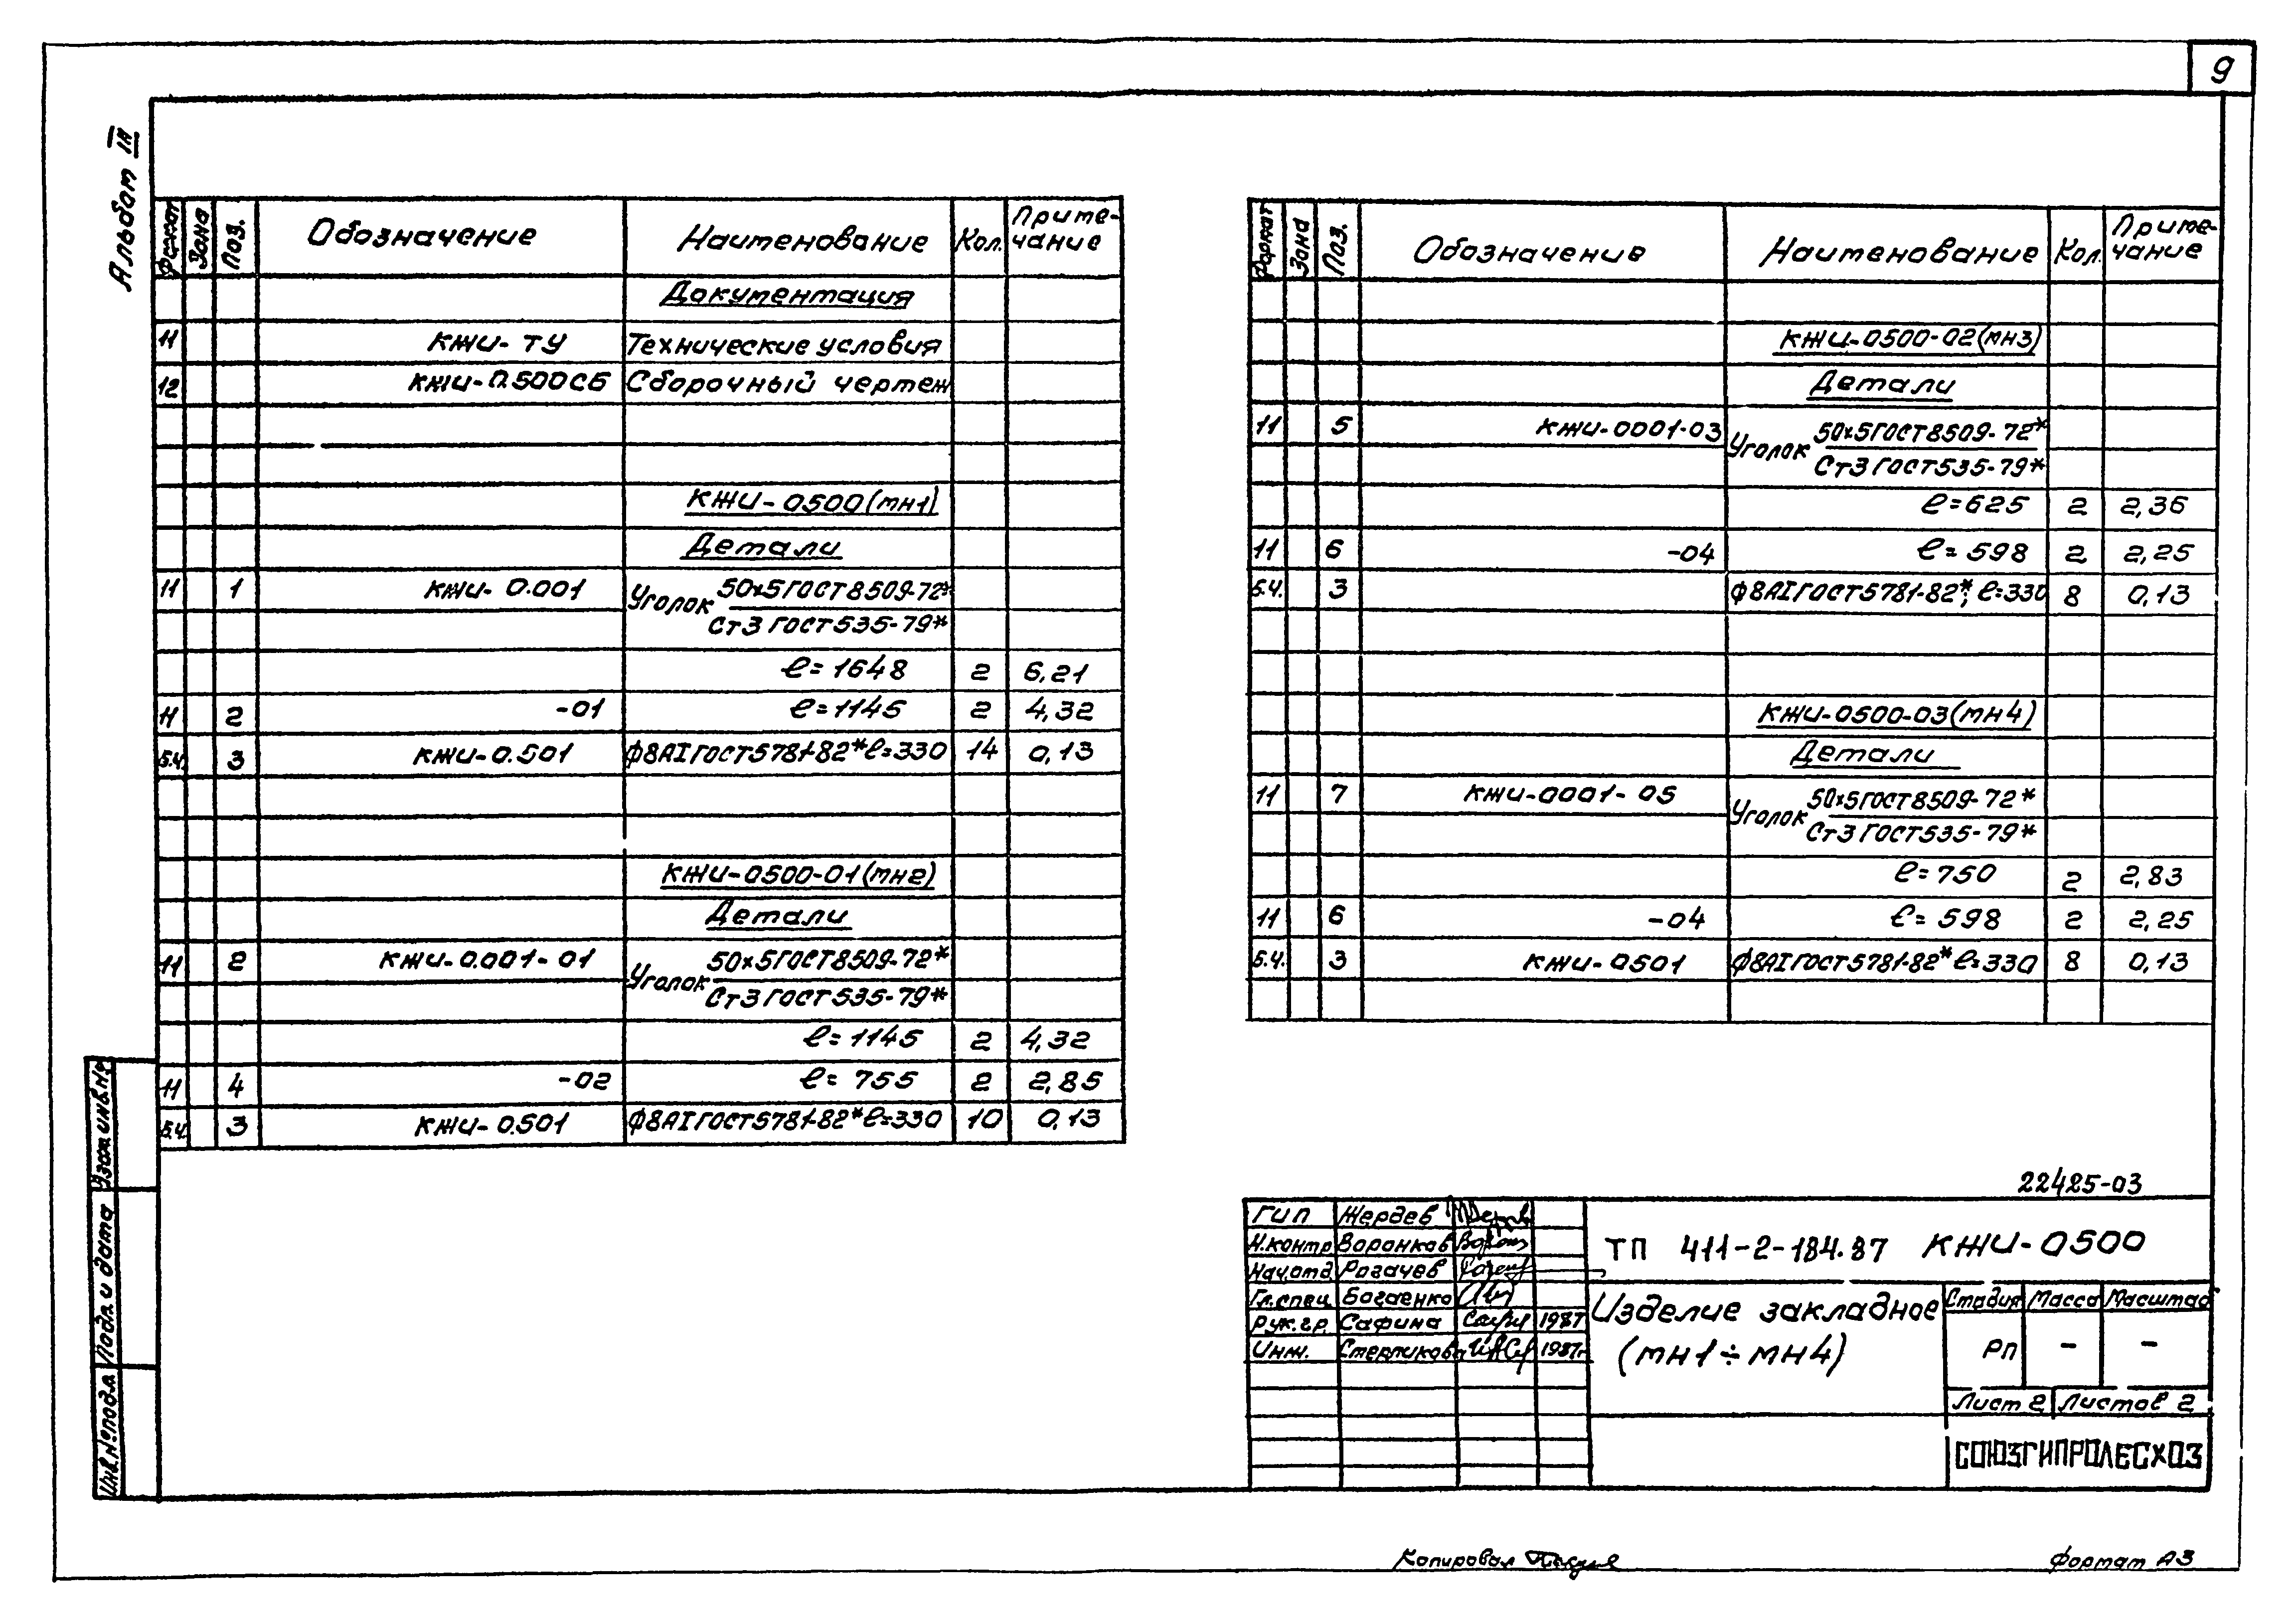 9
Альбом III
Формат Зона Поз. Обозначение Наименование Кол. Приме-чание
Документация
11 КЖИ-ТУ Технические условия
12 КЖИ-0.500СБ Сборочный чертеж
КЖИ-0500(мн1)
Детали
11 1 КЖИ-0.001 Уголок 50х5ГОСТ8509-72*
Ст3 ГОСТ535-79*
ℓ=1648 2 6,21
11 2 -01 ℓ=1145 2 4,32
Б.Ч. 3 КЖИ-0.501 ф8АIГОСТ5781-82* ℓ=330 14 0,13
КЖИ-0500-01(мн2)
Детали
11 2 КЖИ-0.001-01 Уголок 50х5ГОСТ8509-72*
Ст3 ГОСТ535-79*
ℓ=1145 2 4,32
11 4 -02 ℓ=755 2 2,85
Б.Ч. 3 КЖИ-0.501 ф8АIГОСТ5781-82* ℓ=330 10 0,13
Формат Зона Поз. Обозначение Наименование Кол. Приме-чание
КЖИ-0500-02(мн3)
Детали
11 5 КЖИ-0001-03 Уголок 50х5ГОСТ8509-72*
Ст3 ГОСТ535-79*
ℓ=625 2 2,36
11 6 -04 ℓ=598 2 2,25
Б.Ч. 3 ф8АIГОСТ5781-82*; ℓ=330 8 0,13
КЖИ-0500-03(мн4)
Детали
11 7 КЖИ-0001-05 Уголок 50х5ГОСТ8509-72*
Ст3 ГОСТ535-79*
ℓ=750 2 2,83
11 6 -04 ℓ=598 2 2,25
Б.Ч. 3 КЖИ-0501 ф8АIГОСТ5781-82* ℓ=330 8 0,13
Взам.инв.№
Подп. и дата
Инв.№подл.
22425-03
ГИП Жердев
Н.контр. Воронков
Нач.отд. Рогачев
Гл.спец. Багаенко
Рук.гр. Сафина 1987
Инж. Стерликова 1987г
ТП 411-2-184.87 КЖИ-0500
Изделие закладное
(мн1÷мн4)
Стадия Масса Масштаб
РП - -
Лист 2 Листов 2
СОЮЗГИПРОЛЕСХОЗ
Копировал
Формат А3